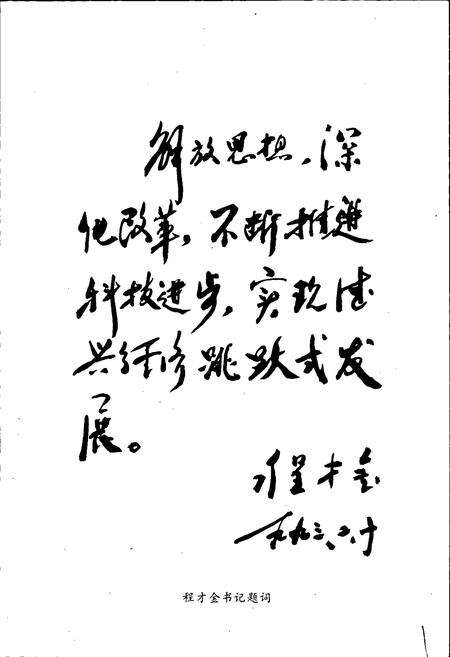 解放思想,深
化改革,不断推进
科技进步,实现德
兴经济跳跃式发
展。
程才金
一九九三、二、十
程才金书记题词